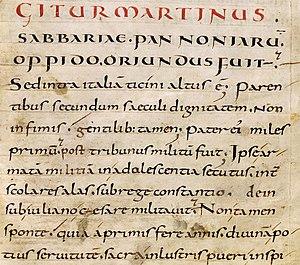 GITUR MARTINUS.
SABBARIAE. PANNONIARŪ
OPPIDO. ORIUNDUS FUIT.
Sed intra italiā ticini altus ē; Paren
tibus secundum saeculi dignitatem. Non
infimis. gentilib; tamen; Pater eius miles
primū. post tribunus militū fuit; Ipse ar
matā militiā in adolescentia secutus. int
scolares alas. sub rege constantio. dein
sub iuliano caesare militavit; Non tamen
sponte. quia a primis fere annis. divinā po
tius servitutē. sacra inlustris pueri inspi